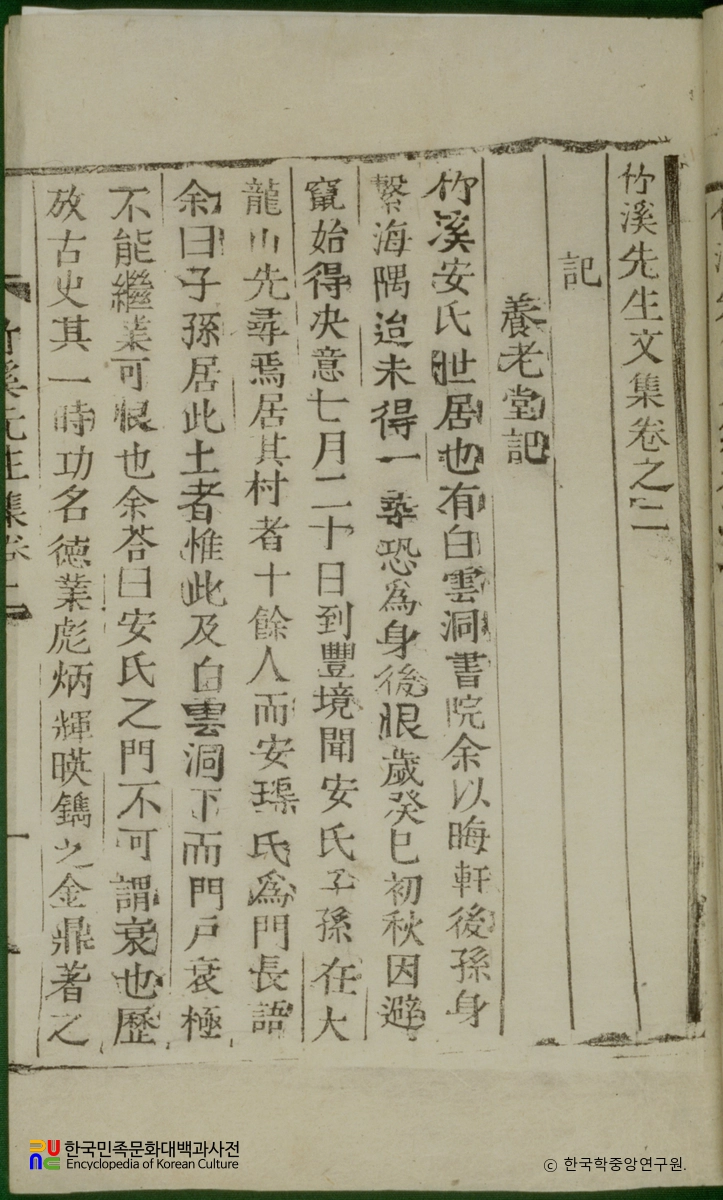 竹溪先生文集卷之二
記
養老堂記
竹溪安氏世居也有白雲洞書院余以晦軒後孫身
繫海隅迨未得一尋恐爲身後恨歲癸巳初秋因避
竄始得决意七月二十日到豐境聞安氏子孫在大
龍山先尋焉居其村者十餘人而安璟氏爲門長語
余曰子孫居此土者惟此及白雲洞下而門戶衰極
不能繼業可恨也余荅曰安氏之門不可謂衰也歷
攷古史其一時功名德業彪炳輝暎鐫之金鼎著之
竹溪先生集卷二
한국민족문화대백과사전
Encyclopedia of Korean Culture
ⓒ 한국학중앙연구원.